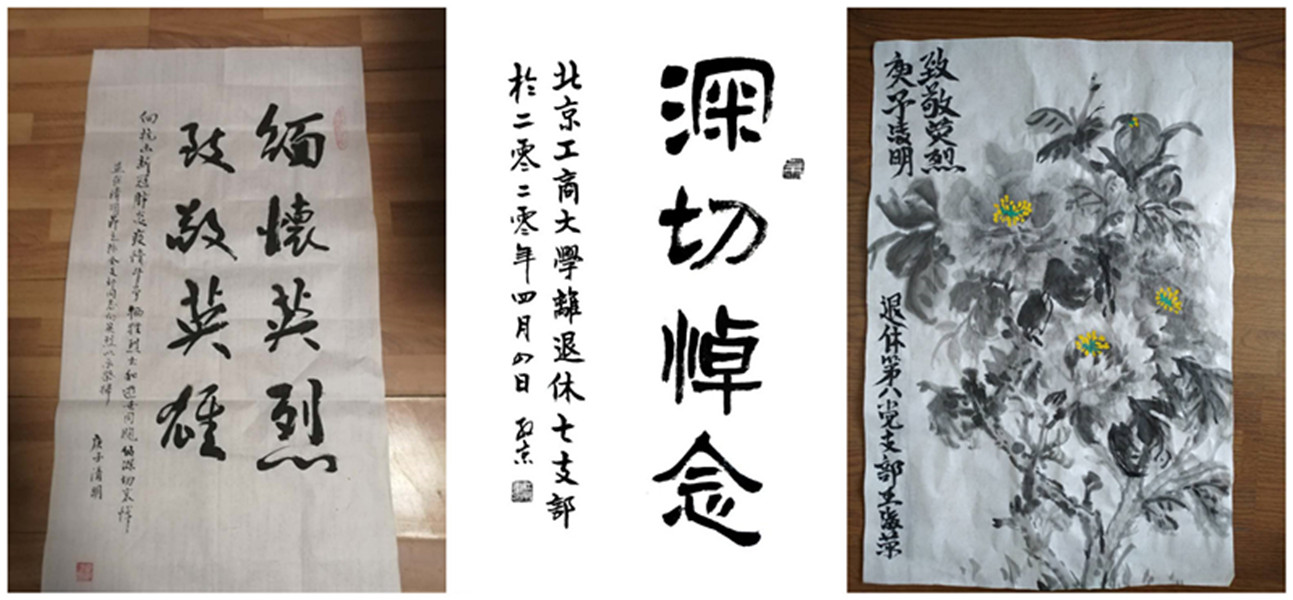 缅懷英烈
致敬英雄
向抗击新冠肺炎疫情斗争牺牲烈士和逝世同胞致深切哀悼
庚子清明
深切悼念
北京工商大學離退休七支部
於二零二零年四月四日
致敬英烈
庚子清明
退休第八党支部王俊荣